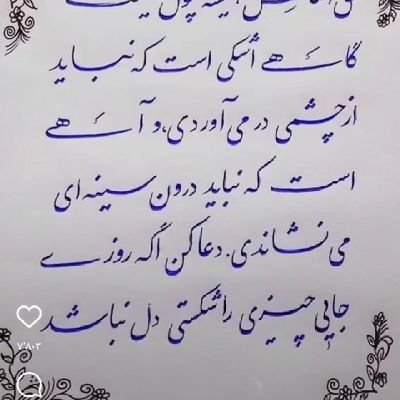 همیشه پول نیست
گاهے اشکی است که نباید
از چشمی در می‌آوردی، و آهے
است که نباید درون سینه‌ای
می‌نشاندی. دعا کن اگه روزے
جایی چیزی را شکستی دل نباشد
۷٬۸۰۳